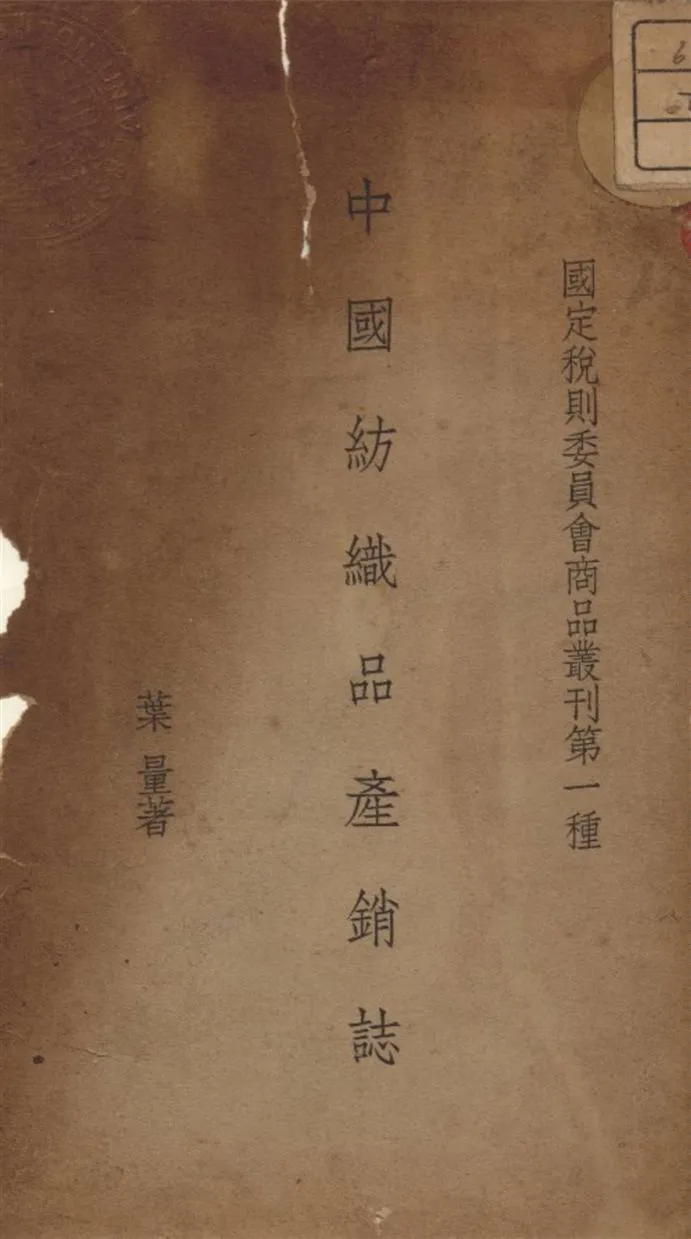 國定稅則委員會商品叢刊第一種
中國紡織品產銷誌
葉量著